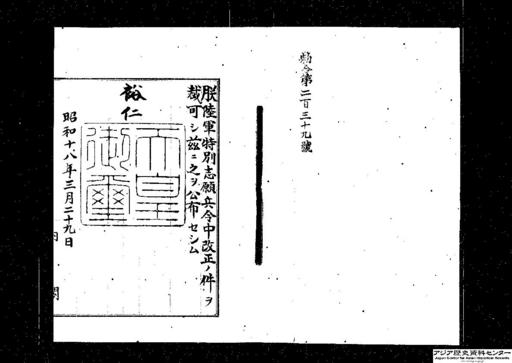 勅令第二百三十九號
朕陸軍特別志願兵令中改正ノ件ヲ
裁可シ茲ニ之ヲ公布セシム
裕仁
天皇
御璽
昭和十八年三月二十九日
内閣
アジア歴史資料センター
Japan Center for Asian Historical Records